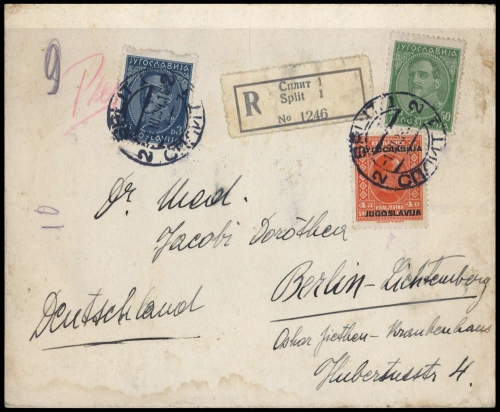 9
ЈУГОСЛАВИЈА
ЈУГОСЛАВИЈА
Сплит 1
R Split 1
No 1246
SPLIT 2 СПЛИТ 2
SPLIT 2 СПЛИТ 2
JUGOSLAVIJA
10
Dr. Med.
Jacobi Dorothea
Berlin-Lichtenberg
Deutschland
Oskar Ziethen-Krankenhaus
Hubertusstr 4.